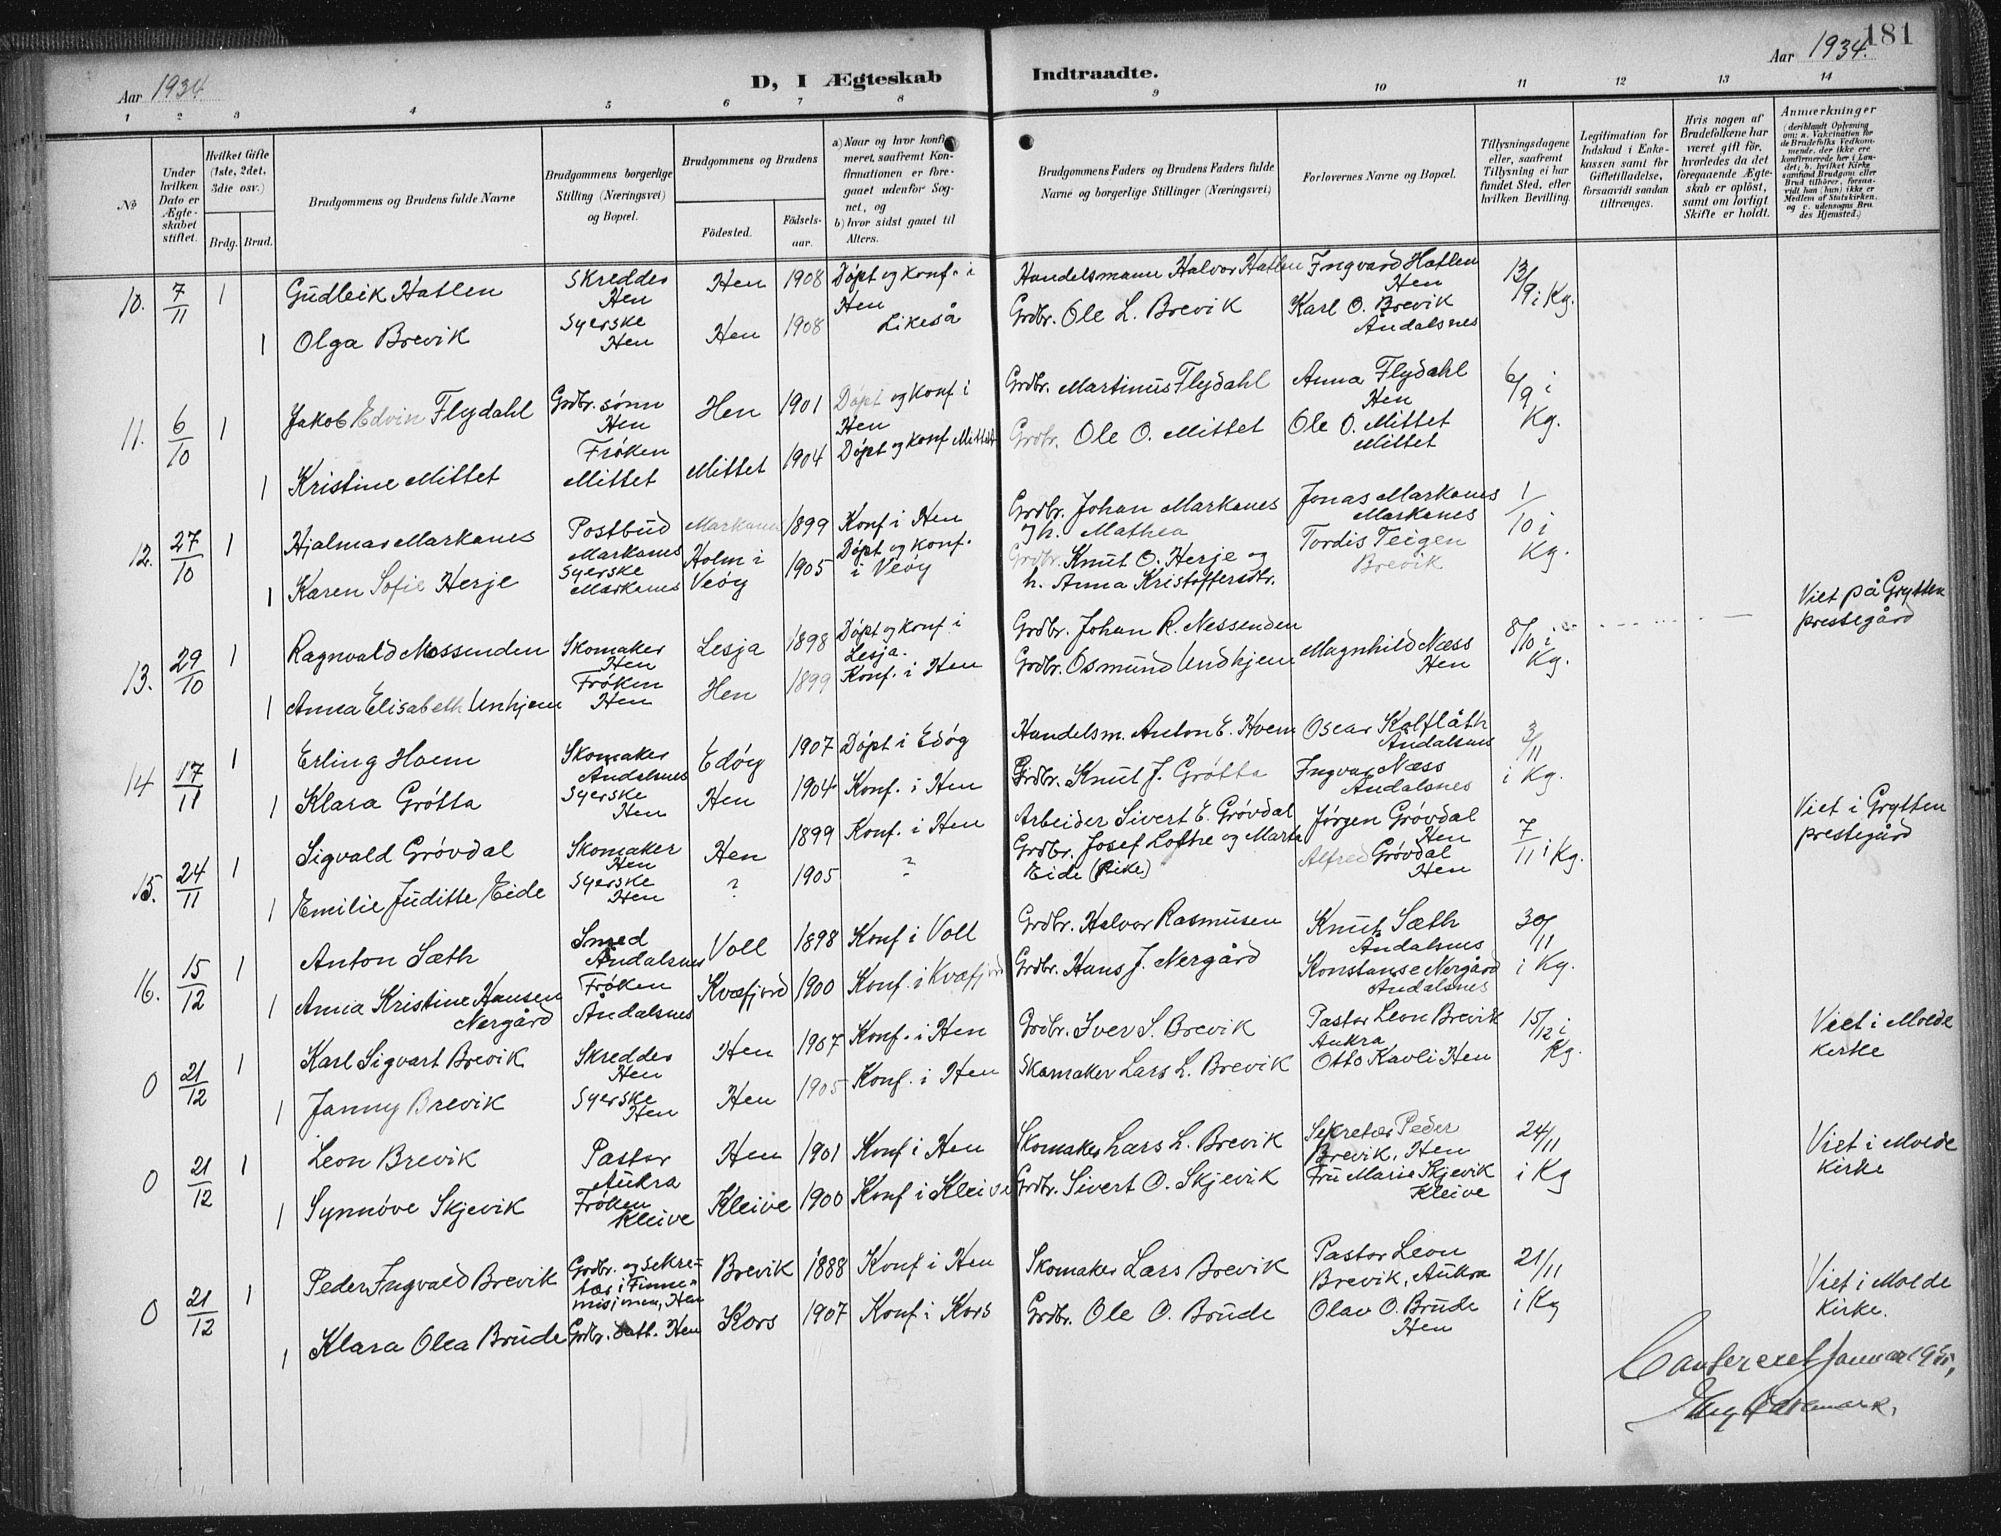 181
Aar 1934
D, I Ægteskab
Indtraadte.
Aar 1934.
1 2 3 4 5 6 7 8 9 10 11 12 13 14
№
Under hvilken Dato er Ægteskabet stiftet.
Hvilket Gifte (1ste, 2det, 3die osv.)
Brdg. Brud.
Brudgommens og Brudens fulde Navne
Brudgommens borgerlige Stilling (Næringsvei) og Bopæl.
Brudgommens og Brudens
Födested.
Födselsaar.
a) Naar og hvor konfirmeret, saafremt Konfirmationen er foregaaet udenfor Sognet, og
b) hvor sidst gaaet til Alters.
Brudgommens Faders og Brudens Faders fulde Navne og borgerlige Stillinger (Næringsvei)
Forlovernes Navne og Bopæl.
Tillysningsdagene eller, saafremt Tillysning ei har fundet Sted, efter hvilken Bevilling.
Legitimation for Indskud i Enkekassen samt for Giftetilladelse, forsaavidt saadan tiltrænges.
Hvis nogen af Brudefolkene har været gift før, hvorledes da det foregaaende Ægteskab er oplöst, samt om lovligt Skifte er holdt.
Anmærkninger
(deriblandt Oplysning om: a. Vakcination for de Brudefolks Vedkommende, der ikke ere konfirmerede her i Landet, b. hvilket Kirkesamfund Brudgom eller Brud tilhörer, forsaavidt han (hun) ikke er Medlem af Statskirken, og c. udensogns Brudes Hjemsted.)
10. 7/11 1 Gudleik Hatlen Skredder Hen Hen 1908 Døpt og konf. i Hen Handelsmann Halvor Hatlen Ingvard Hatlen Hen 13/9 i Kg.
1 Olga Brevik Syerske Hen Hen 1908 Likeså Grdbr. Ole L. Brevik Karl O. Brevik Åndalsnes
11. 6/10 1 Jakob Edvin Flydahl Grdbr. sønn Hen Hen 1901 Døpt og konf i Hen Grdbr. Martinus Flydahl Anna Flydahl Hen 6/9 i Kg.
1 Kristine Mittet Frøken Mittet Mittet 1904 Døpt og konf Mittet Grdbr. Ole O. Mittet Ole O. Mittet Mittet
12. 27/10 1 Hjalmar Markanes Postbud Markanes Markanes 1899 Konf i Hen Grdbr. Johan Markanes og h. Mathea Jonas Markanes Markanes 1/10 i Kg.
1 Karen Sofie Herje Syerske Markanes Holm i Veøy 1905 Døpt og konf. i Veøy Grdbr. Knut O. Herje og h. Anna Kristoffersdtr. Tordis Teigen Brevik
13. 29/10 1 Ragnvald Nessenden Skomaker Hen Lesja 1898 Døpt og konf i Lesja. Grdbr. Johan R. Nessenden Magnhild Næss Hen 8/10 i Kg. Viet på Grytten prestegård
1 Anna Elisabeth Unhjem Frøken Hen Hen 1899 Konf. i Hen Grdbr. Osmund Undhjem
14 17/11 1 Erling Hoem Skomaker Åndalsnes Edøy 1907 Døpt i Edøy Handelsm. Anton E. Hoem Oscar Kolflåth Åndalsnes 3/11 i Kg.
1 Klara Grøtta Syerske Hen Hen 1904 Konf. i Hen Grdbr. Knut J. Grøtta Ingvar Næss Åndalsnes
15. 24/11 1 Sigvald Grøvdal Skomaker Hen Hen 1899 Konf. i Hen Arbeider Sivert E. Grøvdal Jørgen Grøvdal Hen 7/11 i Kg. Viet i Grytten prestegård
1 Emilie Juditte Eide Syerske Hen ? 1905 ? Grdbr. Josef Lothe og Marta Eide Alfred Grøvdal Hen
16. 15/12 1 Anton Sæth Smed Åndalsnes Voll 1898 Konf i Voll Grdbr. Halvor Rasmusen Knut Sæth Åndalsnes 30/11 i Kg.
1 Anna Kristine Hansen Nergård Frøken Åndalsnes Kvæfjord 1900 Konf. i Kvæfjord Grdbr. Hans J. Nergård Konstanse Nergård Åndalsnes
0 21/12 1 Karl Sigvart Brevik Skredder Hen Hen 1907 Konf. i Hen Grdbr. Iver S. Brevik Pastor Leon Brevik Aukra 15/12 i Kg. Viet i Molde kirke
1 Janny Brevik Syerske Hen Hen 1905 Konf. i Hen Skomaker Lars L. Brevik Otto Kavli Hen
0 21/12 1 Leon Brevik Pastor Aukra Hen 1901 Konf i Hen Skomaker Lars L. Brevik Sekretær Peder Brevik, Hen 24/11 i Kg Viet i Molde kirke
1 Synnøve Skjevik Frøken Kleive Kleive 1900 Konf i Kleive Grdbr. Sivert O. Skjevik Fru Marie Skjevik Kleive
0 21/12 1 Peder Ingvald Brevik Grdbr. og sekretær i Finnemisjonen, Hen Brevik 1888 Konf i Hen Skomaker Lars Brevik Pastor Leon Brevik, Aukra 21/11 i Kg Viet i Molde kirke.
1 Klara Olea Brude Grdbr. datt. Hen Kors 1907 Konf i Kors Grdbr. Ole O. Brude Olav O. Brude Hen
Conferert Januar